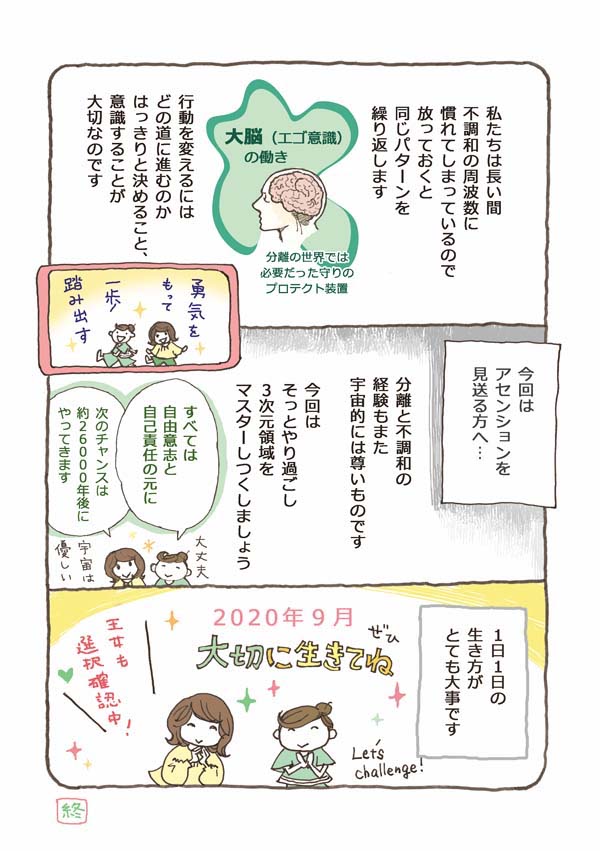 私たちは長い間
不調和の周波数に
慣れてしまっているので
放っておくと
同じパターンを
繰り返します
大脳（エゴ意識）
の働き
分離の世界では
必要だった守りの
プロテクト装置
行動を変えるには
どの道に進むのか
はっきりと決めること、
意識することが
大切なのです
勇気を
もって
一歩
踏み出す
今回は
アセンションを
見送る方へ…
分離と不調和の
経験もまた
宇宙的には尊いものです
今回は
そっとやり過ごし
3次元領域を
マスターしつくしましょう
すべては
自由意志と
自己責任の元に
次のチャンスは
約26000年後に
やってきます
大丈夫
宇宙は
優しい
1日1日の
生き方が
とても大事です
2020年9月
ぜひ
大切に生きてね
王女も
選択確認中！
Let's
challenge!
終